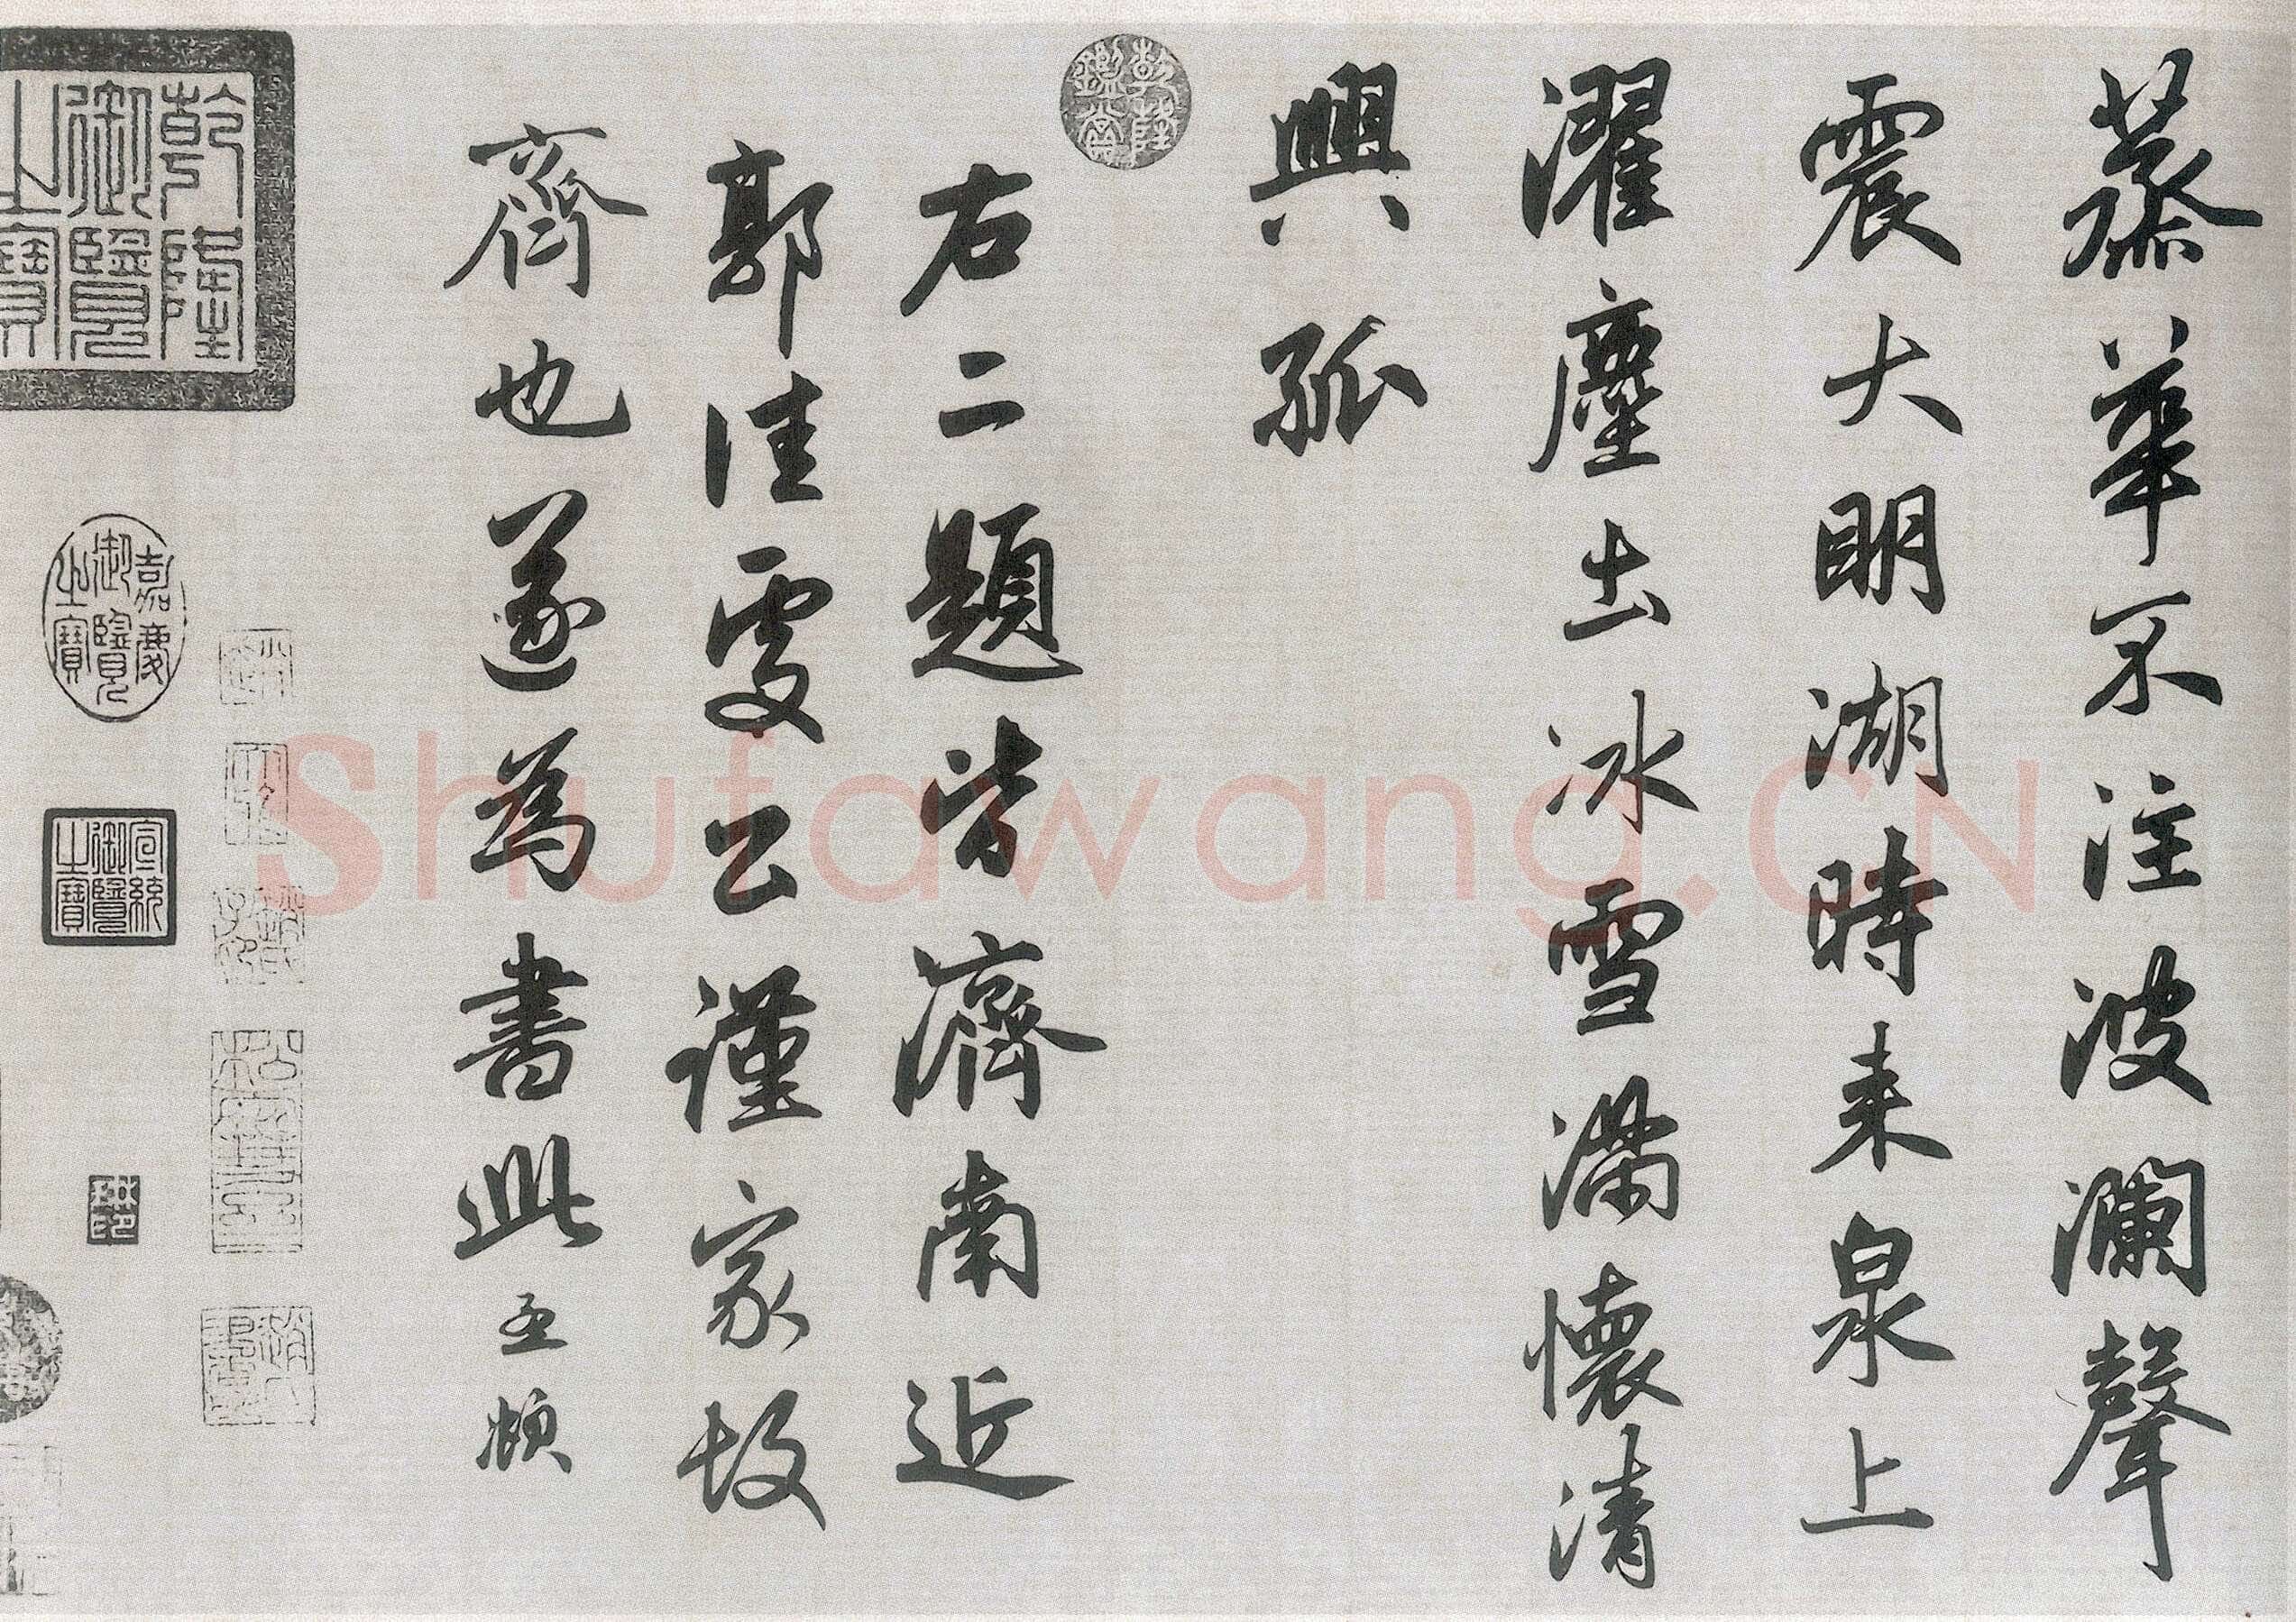 蒸華不注波瀾聲
震大明湖時来泉上
濯塵土冰雪滿懷清
興孤
右二題皆濟南近
郭佳處公謹家故
齊也遂為書此孟頫
乾隆鑑賞
乾隆御覽之寶
嘉慶御覽之寶
宣統御覽之寶
趙氏書印
Shufawang.CN